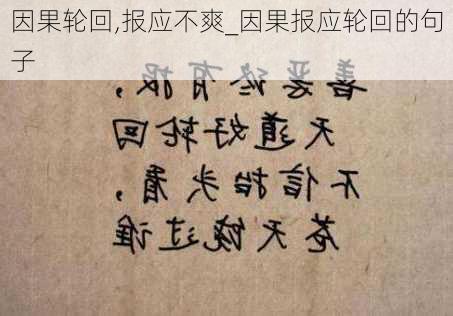 因果轮回,报应不爽_因果报应轮回的句
子
善恶终有报，
天道好轮回
不信抬头看，
苍天饶过谁